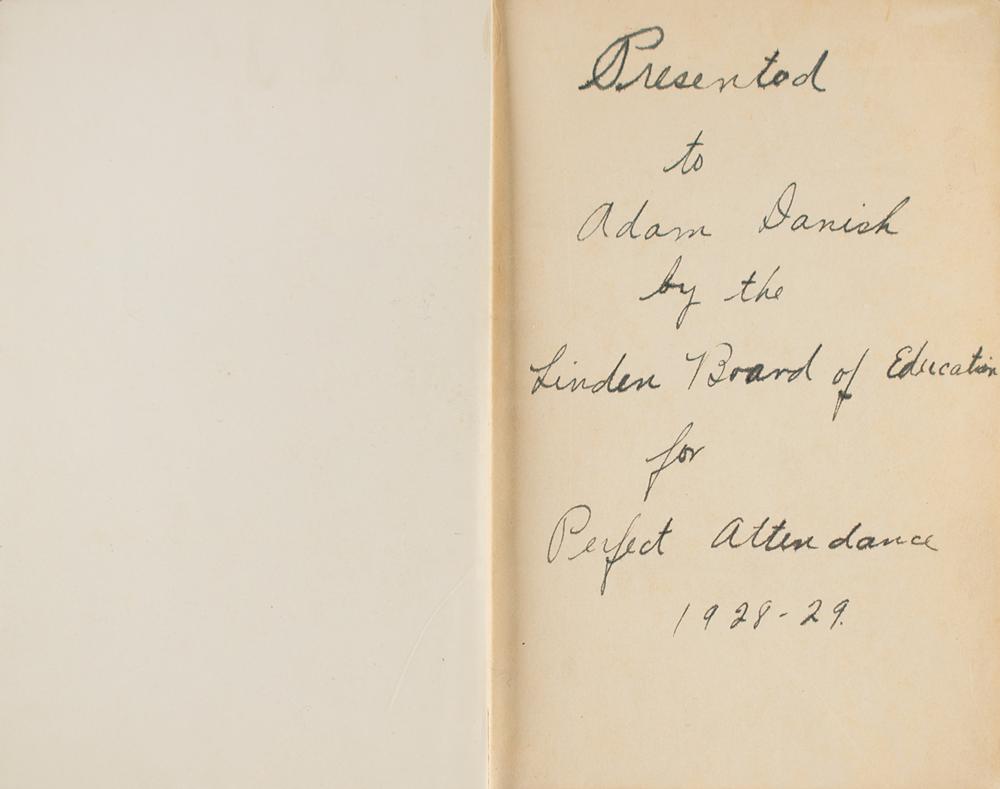 Presented
to
Adam Danish
by the
Linden Board of Education
for
Perfect Attendance
1928-29.